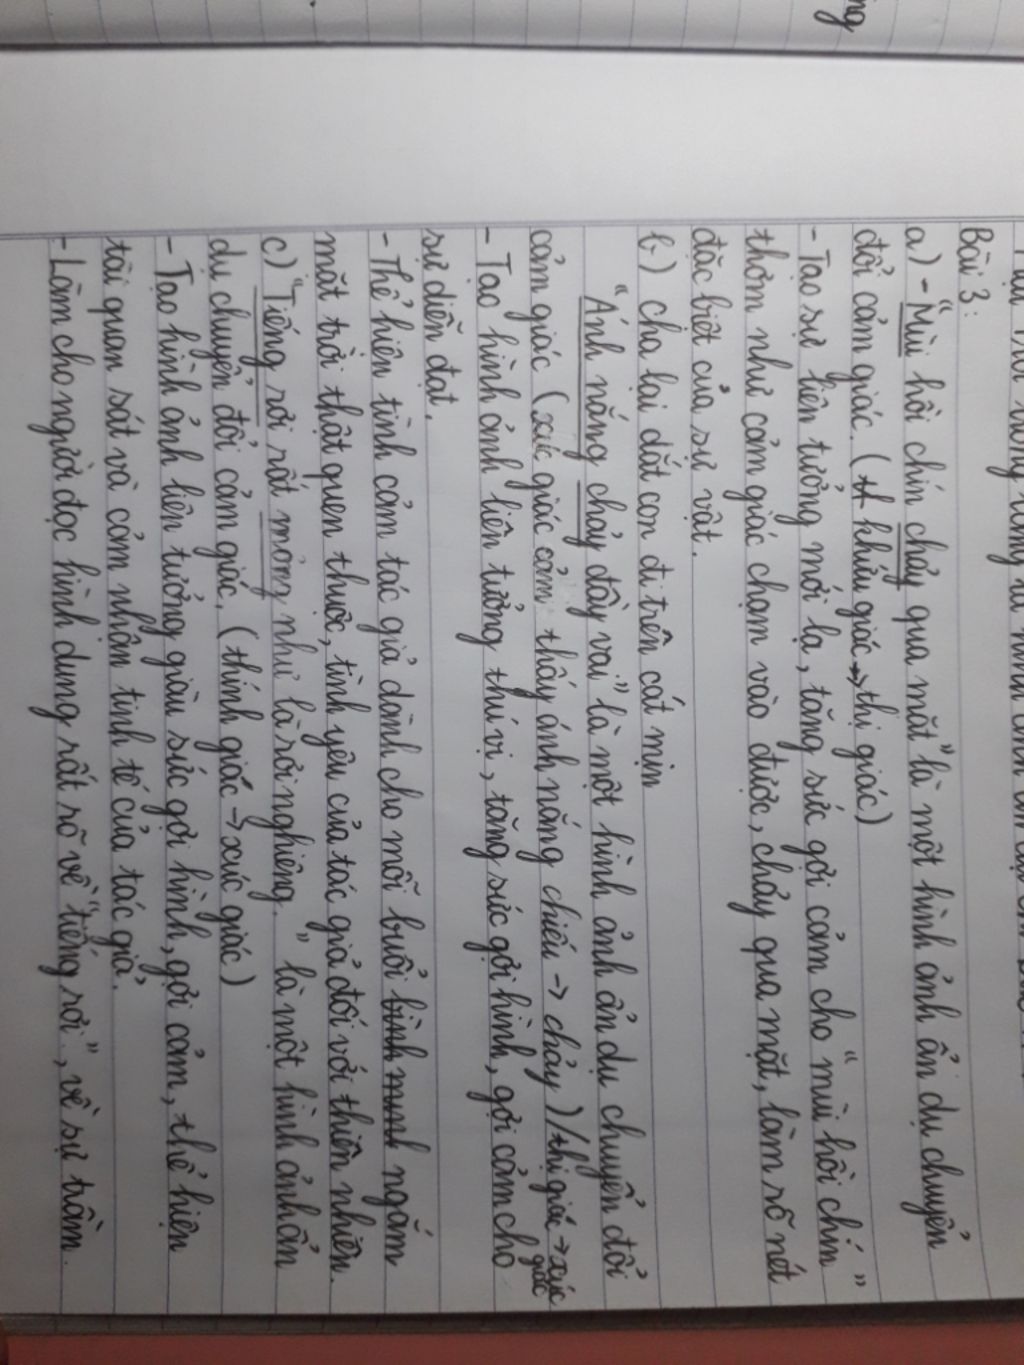 Bài 3:
a) - "Mùi hồi chín chảy qua mặt" là một hình ảnh ẩn dụ chuyển
đổi cảm giác. (khứu giác → thị giác)
- Tạo sự liên tưởng mới lạ, tăng sức gợi cảm cho "mùi hồi chín"
thơm như cảm giác chạm vào được, chảy qua mặt, làm rõ nét
đặc biệt của sự vật.
b) cha lại dắt con đi trên cát mịn
"Ánh nắng chảy đầy vai" là một hình ảnh ẩn dụ chuyển đổi
cảm giác (xúc giác cảm thấy ánh nắng chiếu → chảy) / thị giác → xúc
giác
- Tạo hình ảnh liên tưởng thú vị, tăng sức gợi hình, gợi cảm cho
sự diễn đạt.
- Thể hiện tình cảm tác giả dành cho mỗi buổi bình minh ngắm
mặt trời thật quen thuộc, tình yêu của tác giả đối với thiên nhiên.
c) "Tiếng rơi rất mỏng như là rơi nghiêng." là một hình ảnh ẩn
dụ chuyển đổi cảm giác. (thính giác → xúc giác)
- Tạo hình ảnh liên tưởng giàu sức gợi hình, gợi cảm, thể hiện
tài quan sát và cảm nhận tinh tế của tác giả.
- Làm cho người đọc hình dung rất rõ về "tiếng rơi", về sự trầm